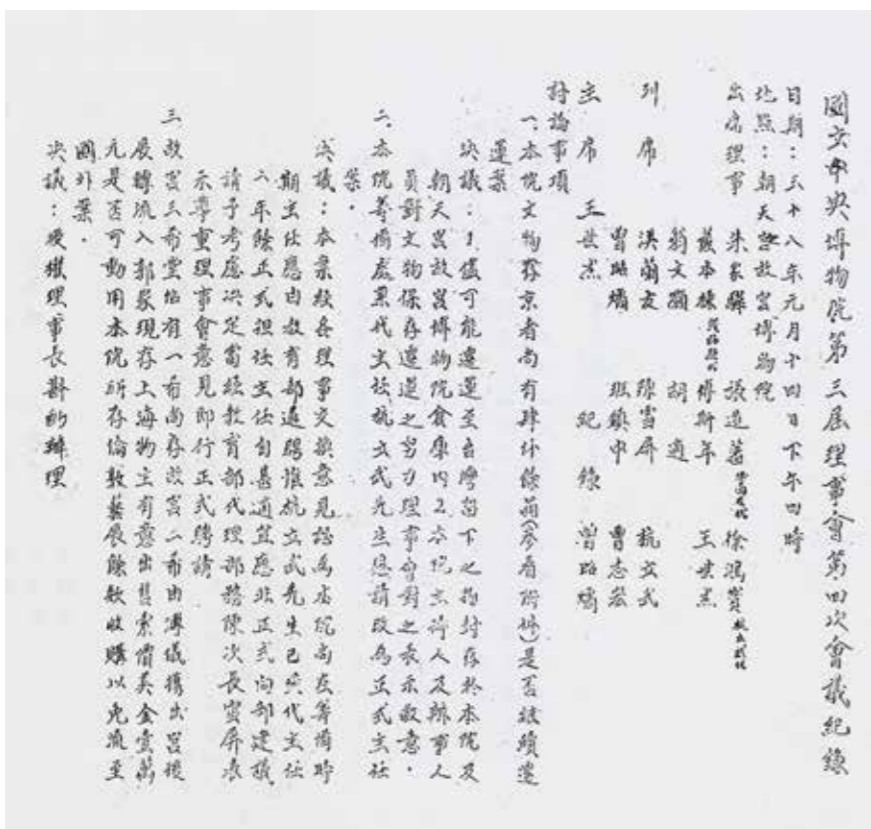 國立中央博物院第三屆理事會第四次會議紀錄
日期：三十八年元月十四日下午四時
地點：朝天宮故宮博物院
出席理事　朱家驊　張道藩　徐鴻寶
戴本棟　傅斯年　王世杰
翁文灝　胡適
列席　洪蘭友　陳雪屏　杭立武
曾昭燏　班鎮中　曹志宏
主席　王世杰　紀錄　曾昭燏
討論事項
一、本院文物存京者尚有肆仟餘箱(參看附件)是否繼續遷
運案
決議：1.儘可能遷運至台灣留下之物封存於本院及
朝天宮故宮博物院倉庫內2.本院主持人及辦事人
員對文物保存遷運之努力理事會對之表示敬意．
二、本院籌備處黑代主任杭立武先生懇請改為正式主任
案．
決議：本案經各理事交換意見認為本院尚在籌備時
期主任應由教育部遴聘惟杭立武先生已兼代主任
六年餘正式担任主任自甚適宜應非正式向部建議
請予考慮決定當經教育部代理部務陳次長雪屏表
示尊重理事會意見即行正式聘請
三、故宮三希堂帖有一希尚存故宮二希由溥儀攜出宮後
展轉流入郭家現存上海物主有意出售索價美金壹萬
元是否可動用本院所存倫敦藝展餘款收購以免流至
國外案．
決議：授權理事長斟酌辦理